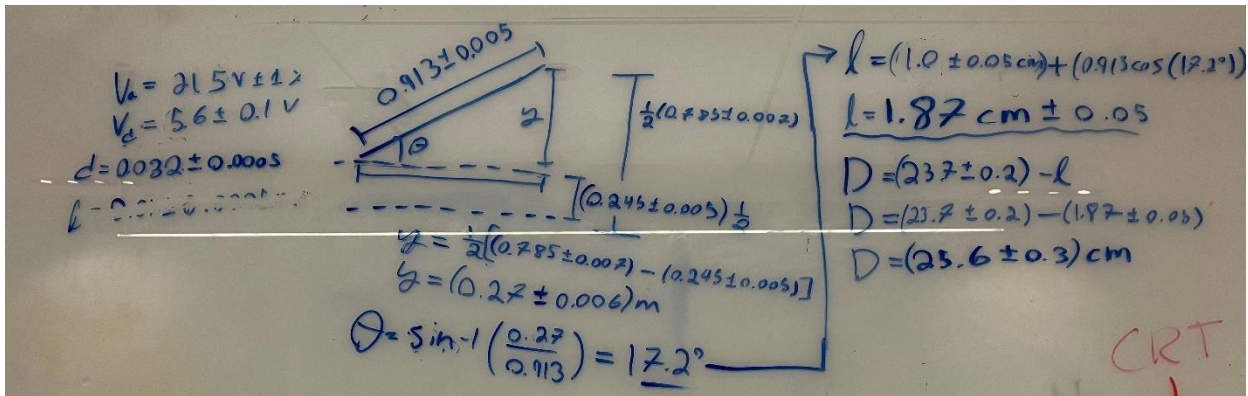 Va = 215V ± 1%
Vd = 5.6 ± 0.1 V
d = 0.032 ± 0.0005
0.913 ± 0.005
θ
y
½(0.785 ± 0.007)
(0.245 ± 0.005)½
y = ½[(0.785 ± 0.007) - (0.245 ± 0.005)]
y = (0.27 ± 0.006)m
θ = sin-1(0.27/0.913) = 17.2°
l = (1.0 ± 0.05 cm) + (0.913 cos(17.2°))
l = 1.87 cm ± 0.05
D = (23.7 ± 0.2) - l
D = (23.7 ± 0.2) - (1.87 ± 0.05)
D = (25.6 ± 0.3) cm
CRT